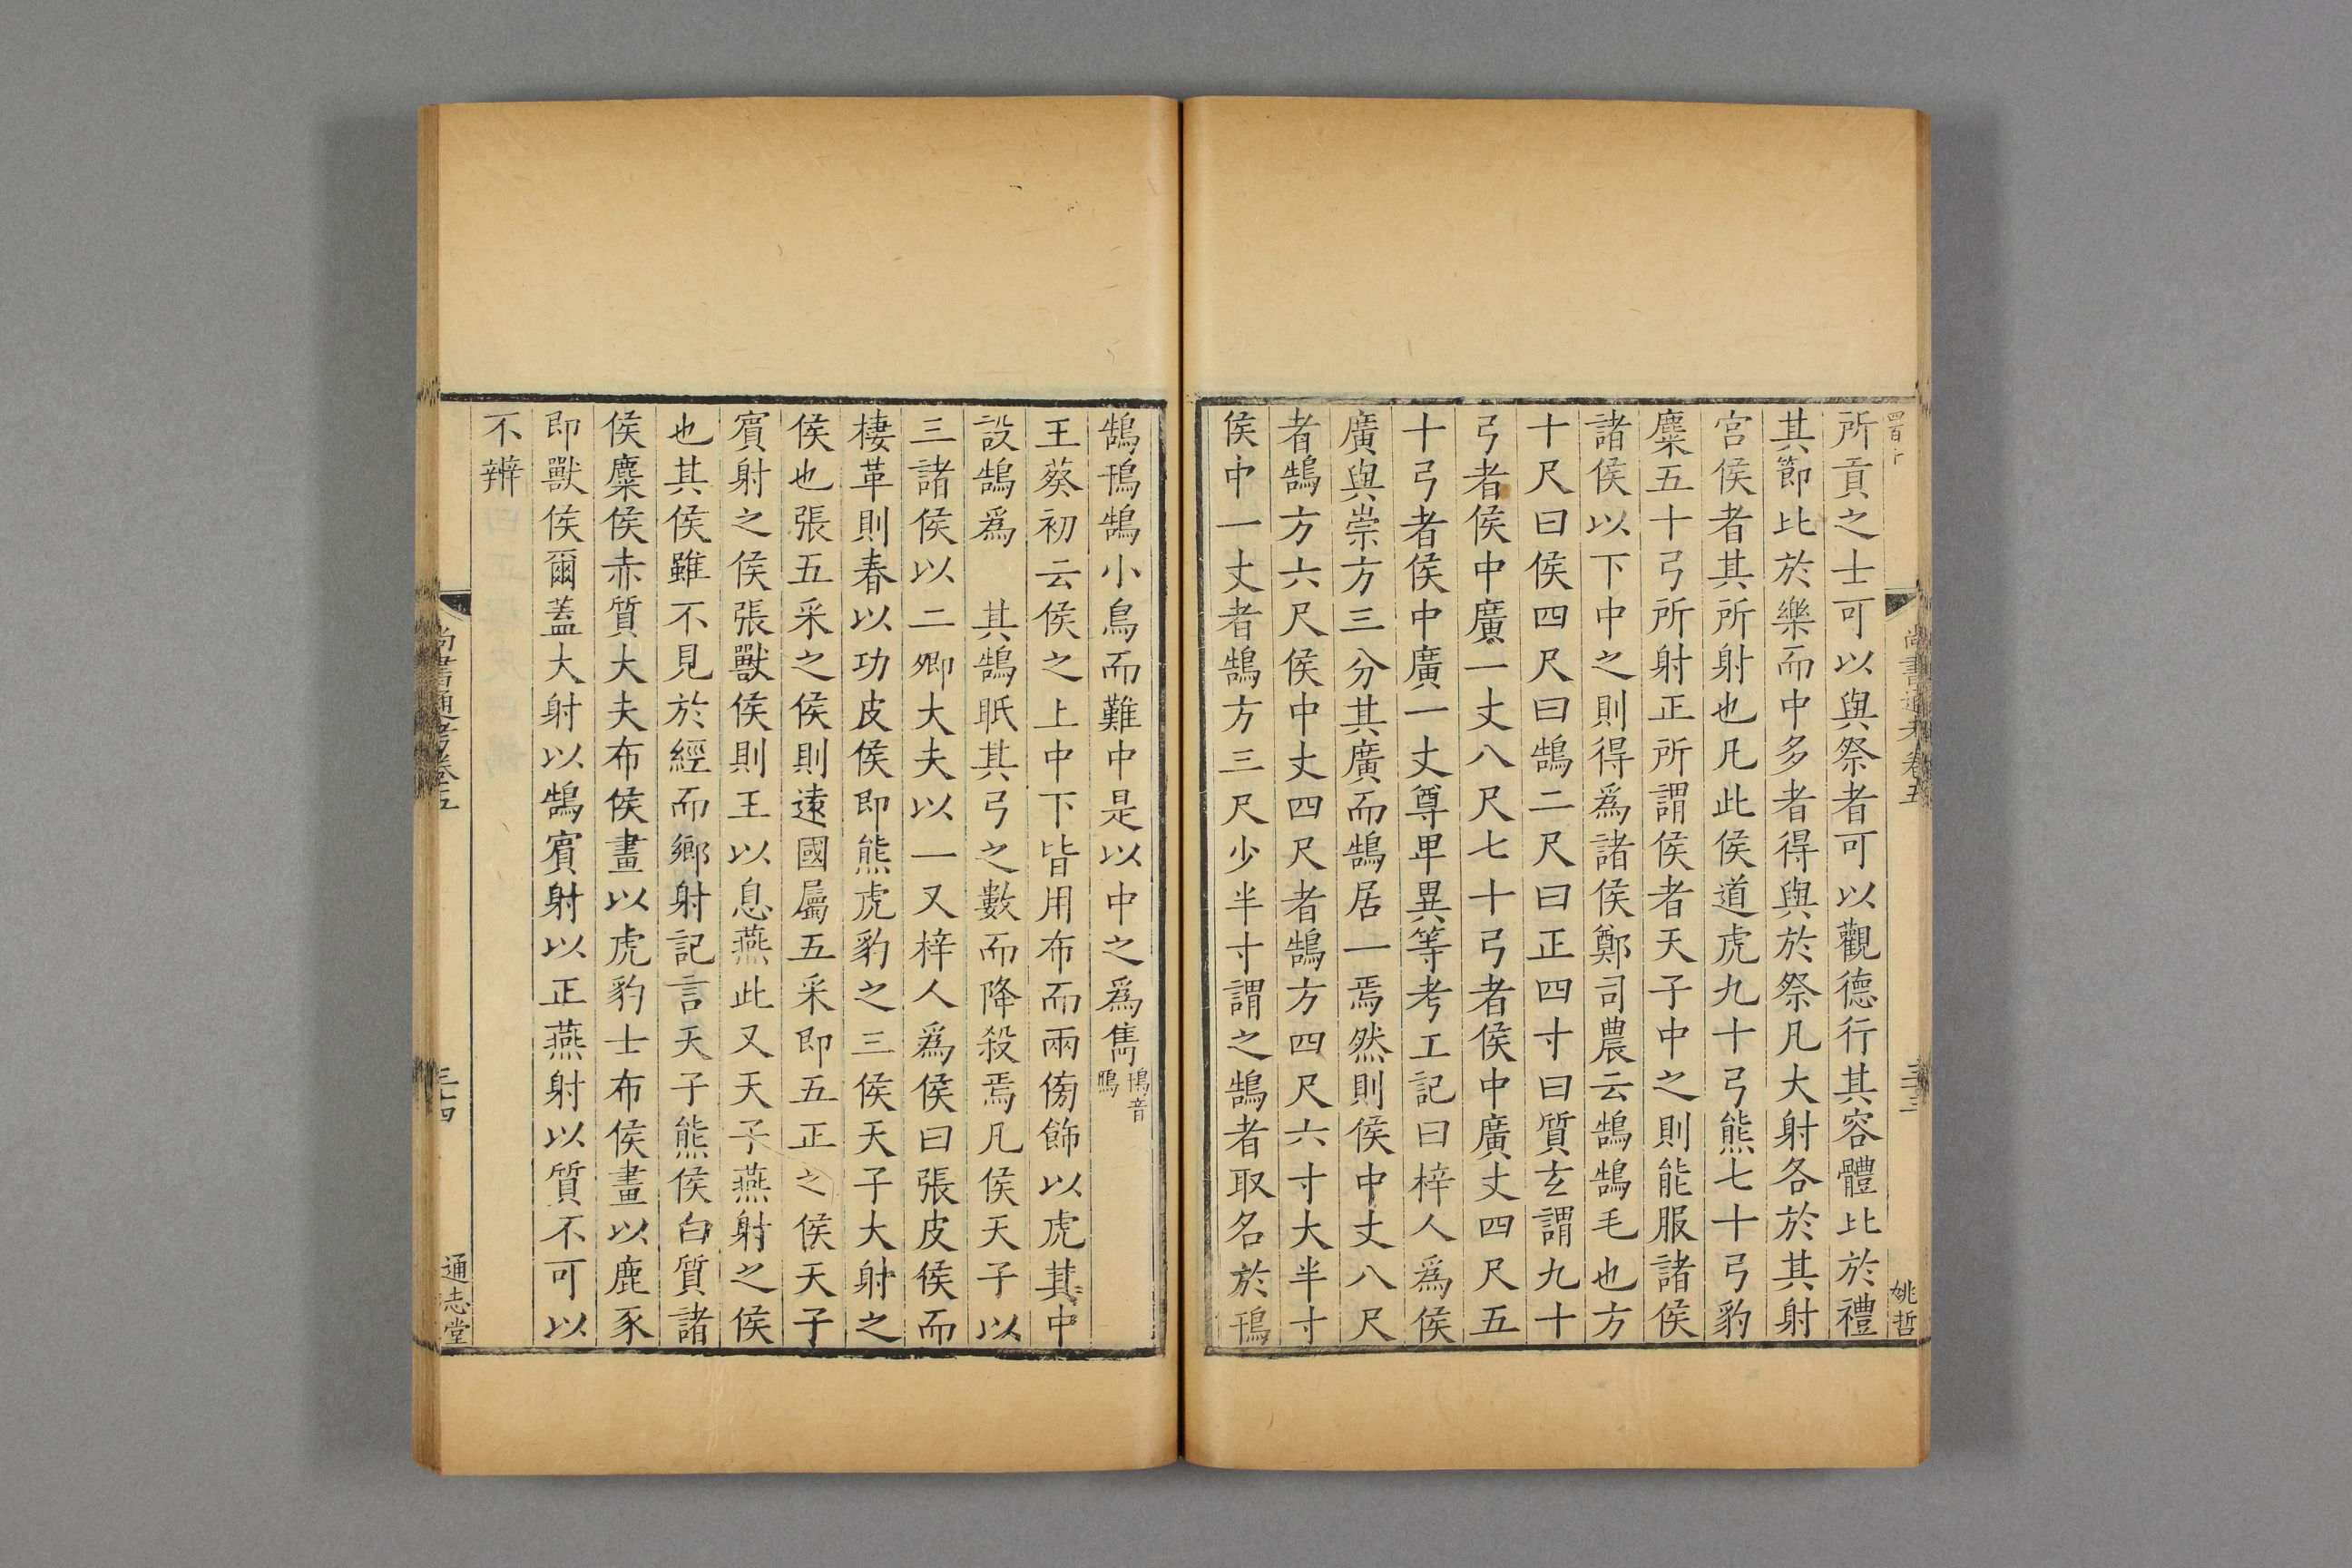 所貢之士可以與祭者可以觀德行其容體比於禮
其節比於樂而中多者得與於祭凡大射各於其射
宮侯者其所射也凡此侯道虎九十弓熊七十弓豹
麋五十弓所射正所謂侯者天子中之則能服諸侯
諸侯以下中之則得爲諸侯鄭司農云鵠鵠毛也方
十尺曰侯四尺曰鵠二尺曰正四寸曰質玄謂九十
弓者侯中廣一丈八尺七十弓者侯中廣丈四尺五
十弓者侯中廣一丈尊卑異等考工記曰梓人爲侯
廣與崇方三分其廣而鵠居一焉然則侯中丈八尺
者鵠方六尺侯中丈四尺者鵠方四尺六寸大半寸
侯中一丈者鵠方三尺少半寸謂之鵠者取名於鳱
姚哲
鵠鳱鵠小鳥而難中是以中之爲雋鳱音鴈
王葵初云侯之上中下皆用布而兩傍飾以虎其中
設鵠爲 其鵠眂其弓之數而降殺焉凡侯天子以
三諸侯以二卿大夫以一又梓人爲侯曰張皮侯而
棲革則春以功皮侯即熊虎豹之三侯天子大射之
侯也張五采之侯則遠國屬五采即五正之侯天子
賓射之侯張獸侯則王以息燕此又天子燕射之侯
也其侯雖不見於經而鄉射記言天子熊侯白質諸
侯麋侯赤質大夫布侯畫以虎豹士布侯畫以鹿豕
即獸侯爾蓋大射以鵠賓射以正燕射以質不可以
不辨
尚書通考卷五
三十四
通志堂